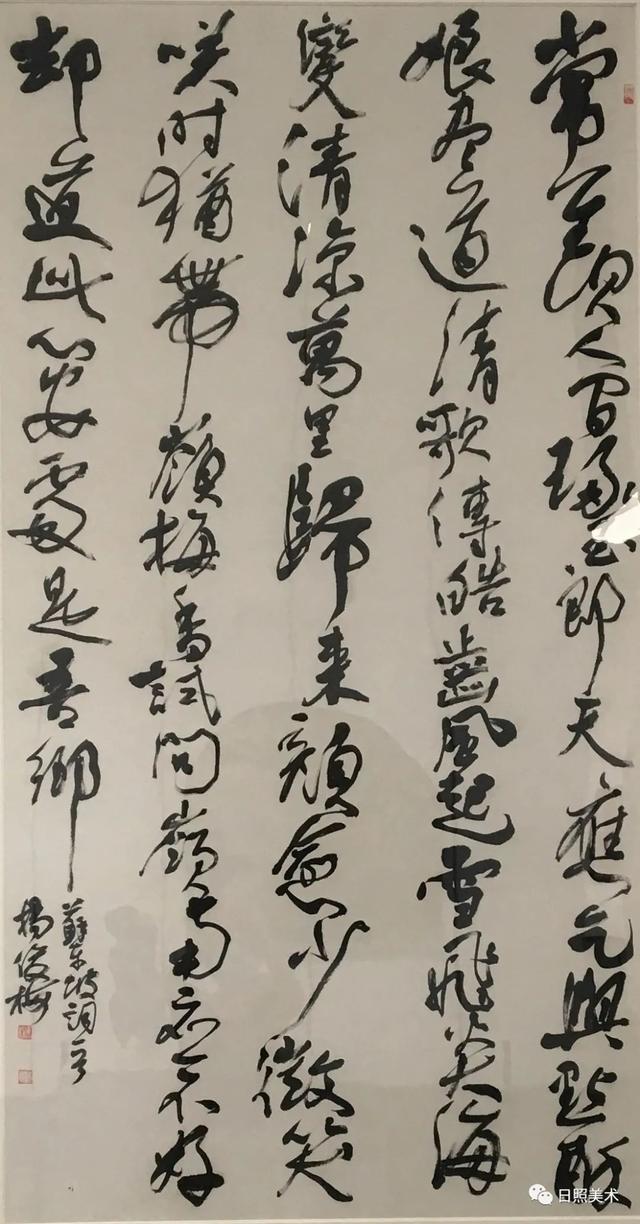 常羨人間琢玉郎天應乞與點酥
娘尽道清歌傳皓齒風起雪飛炎海
變清涼萬里歸来顏愈少微笑
咲时猶帶嶺梅香試問嶺南應不好
却道此心安處是吾鄉
蘇东坡詞
楊俊梅
日照美术